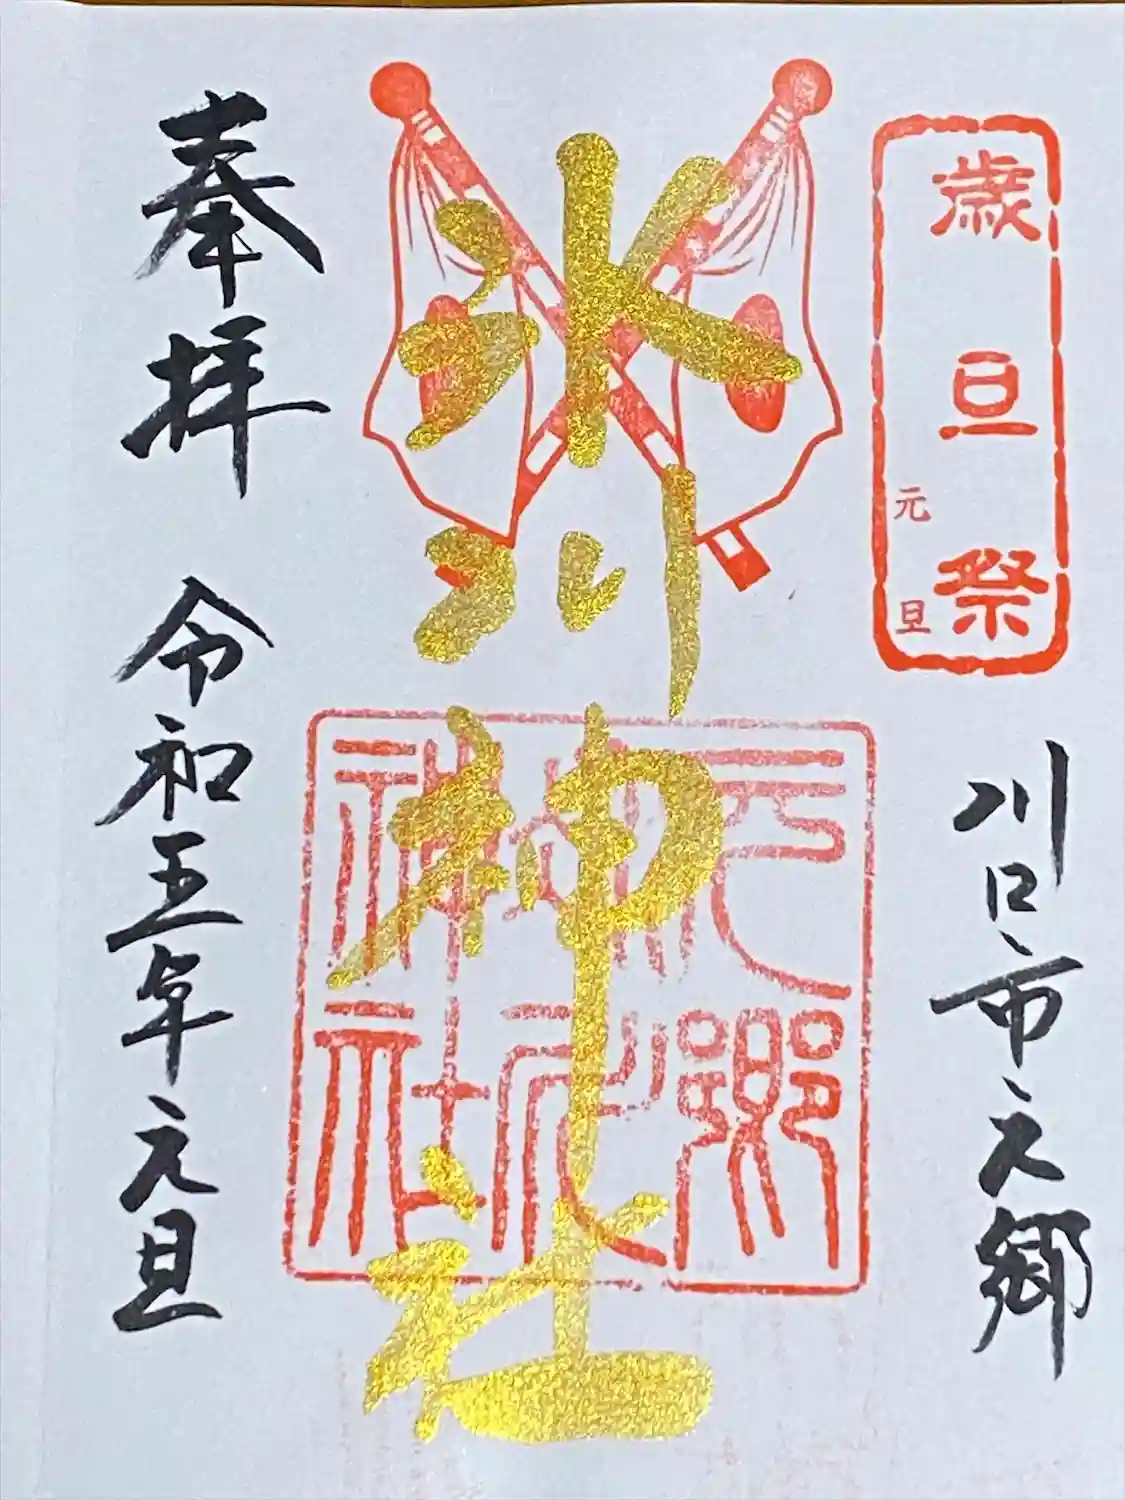 歳旦祭
元旦
川口市元郷
氷川神社
元郷氷川神社
奉拝
令和五年元旦